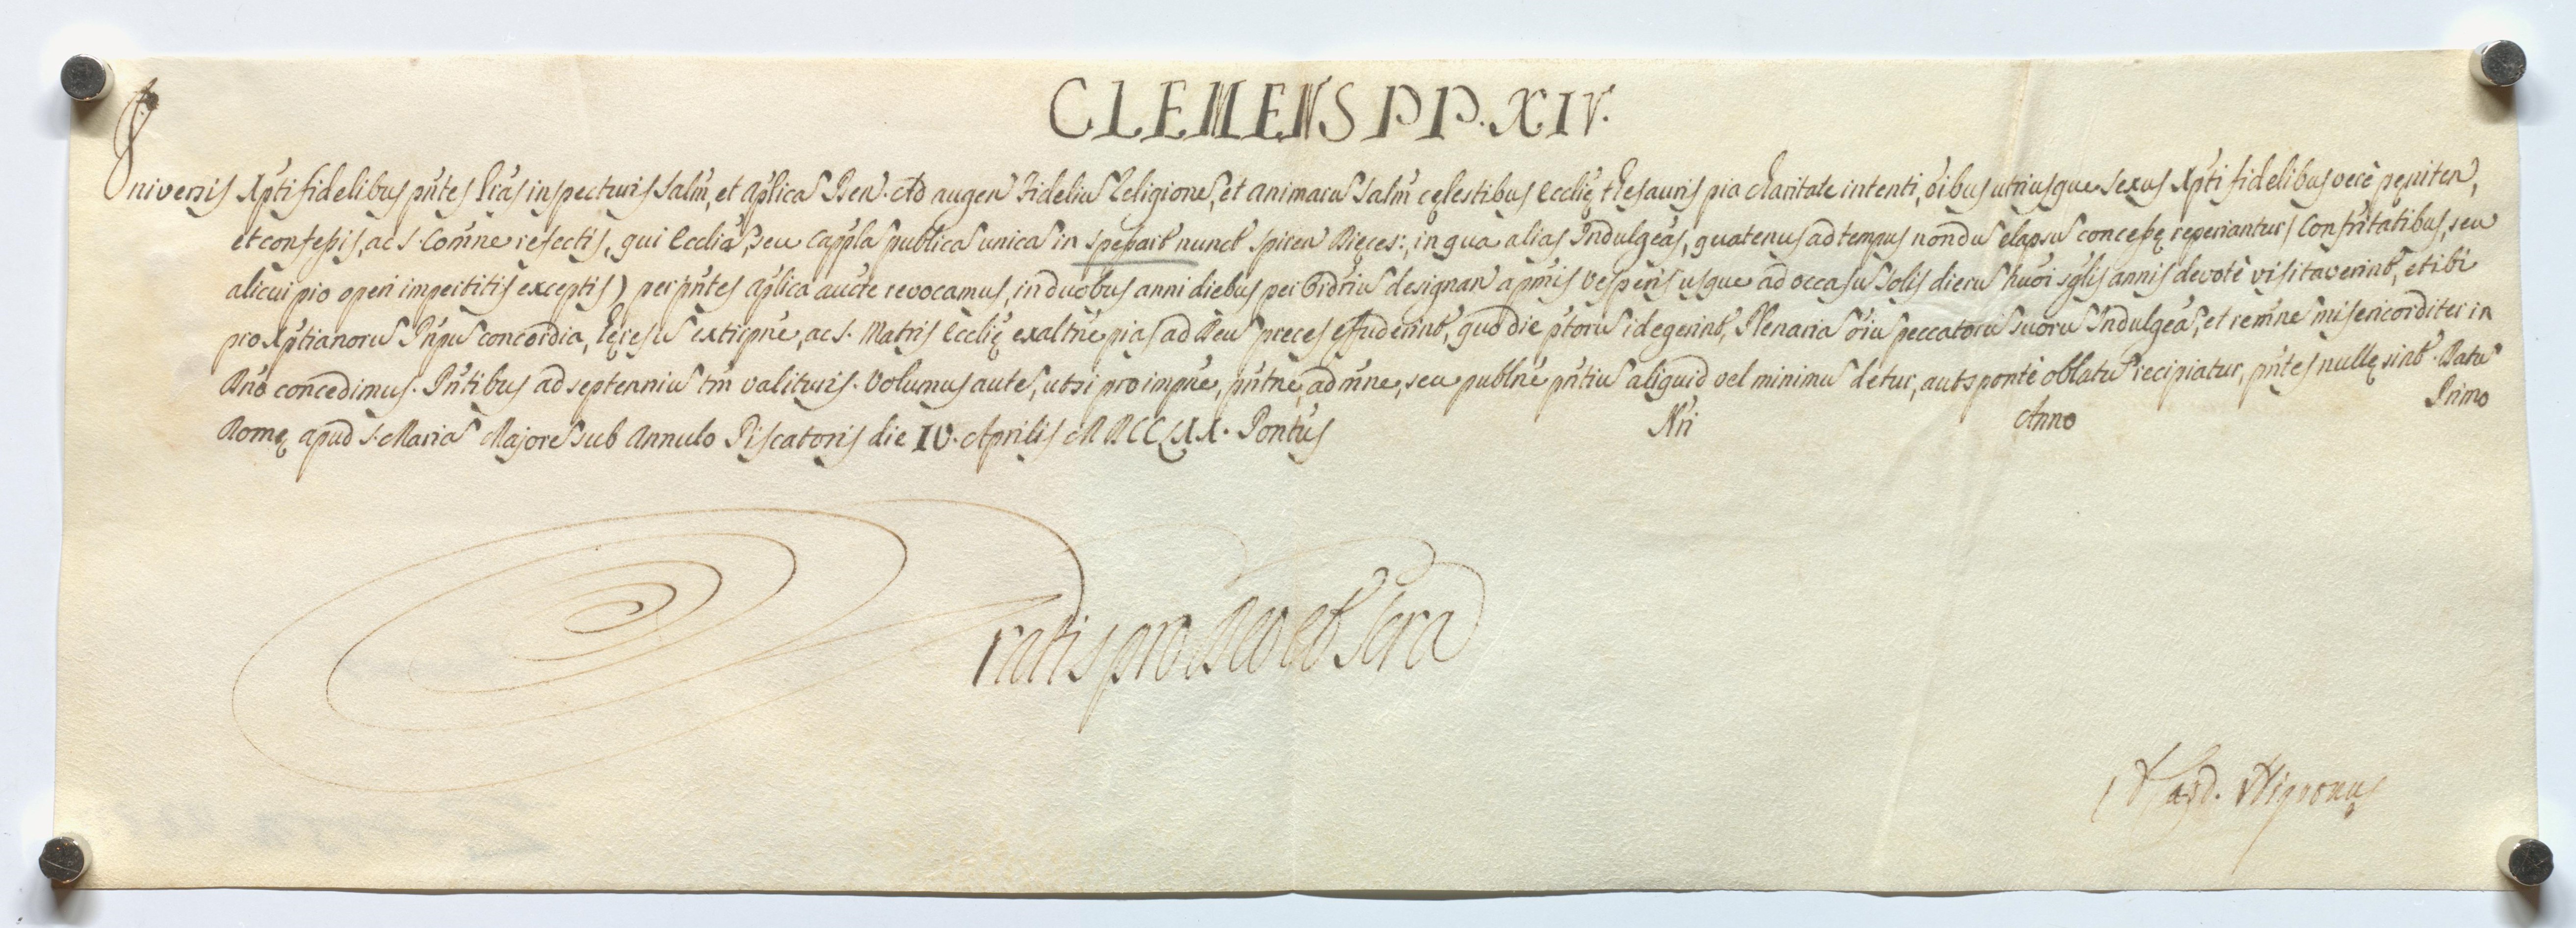 CLEMENS PP. XIV.
Universis Xp̃ti fidelibus pñtes l̃ras inspecturis Salm̃, et Ap̃lica Ben. Ad augen Fideliũ Religione, et animarũ Salm̃ cęlestibus Ecclię thesauris pia charitate intenti, õibus utriusque sexus Xp̃ti fidelibus verè pęniten,
et confessis, ac S. Com̃ne refectis, qui Eccliã, seu Cappla publica unica in spessart nunct Spiren Dięces:, in qua alias Indulgẽas, quatenus ad tempus nondũ elapsũ concessę reperiantur (Confr̃itatibus, seu
alicui pio operi impertitis exceptis) per pñtes ap̃lica aucte revocamus, in duobus anni diebus per Ordriũ designan a prñis Vesperis usque ad occasũ Solis dierũ hũoi sg̃lis annis devotè visitaverint, et ibi
pro Xp̃tianorũ Pñpũ concordia, hęresũ extirpñe, ac S. Matris Ecclię exaltñe pias ad Deũ preces effuderint, quo die p̃torũ id egerint, Plenariã õiũ peccatorũ suorũ Indulgẽas, et rem̃ne misericorditer in
Dño concedimus. Pñtibus ad septenniũ tm̃ valituris. Volumus aute, ut si pro impñe, pñtne, adm̃ne, seu publñe pñtiũ aliquid vel minimũ detur, aut sponte oblatũ recipiatur, pñtes nullę sint. Datũ
Romę apud S. Mariã Majorẽ sub Annulo Piscatoris die IV. Aprilis MDCCLXX. Pontũs Ñri Anno Primo
ratis pro Deo et Scra
A Card. Nigronus